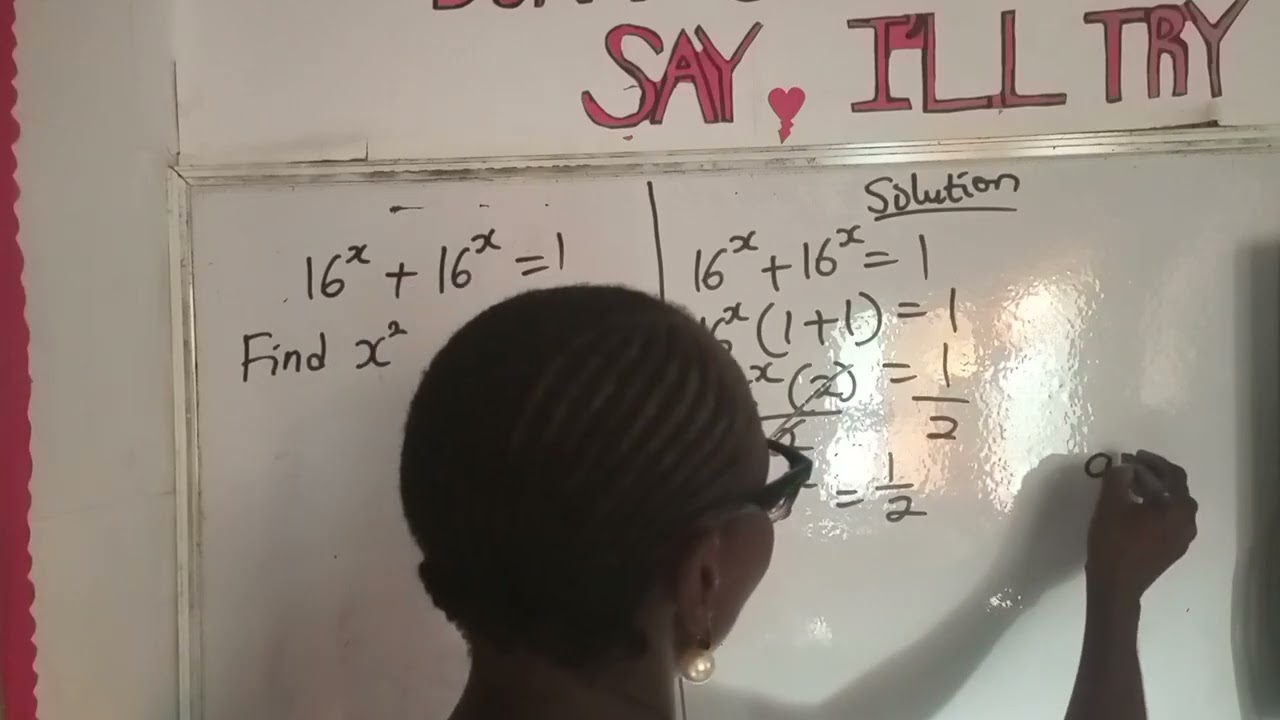 SAY, I'LL TRY
16ˣ + 16ˣ = 1
Find x²
Solution
16ˣ + 16ˣ = 1
6ˣ (1+1) = 1
ˣ (2) = 1
2 2
= 1/2